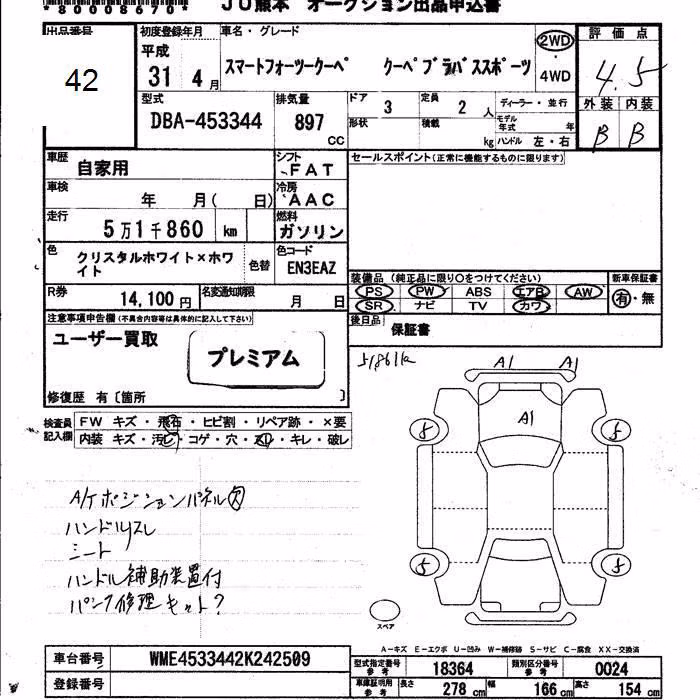 *80008670*
JU熊本 オークション出品申込書
出品番号
42
初度登録年月
平成
31 4 月
車名・グレード
スマートフォーツークーペ クーペブラバススポーツ
2WD
・
4WD
評価点
4.5
外装 内装
B B
型式
DBA-453344
排気量
897
CC
ドア
3
定員
2 人
形状
積載
kg
ディーラー・並行
モデル年式 年
ハンドル 左・右
車歴
自家用
シフト
FAT
セールスポイント(正常に機能するものに限ります)
車検
年 月( 日)
冷房
AAC
走行
5万1千860 km
燃料
ガソリン
色
クリスタルホワイト×ホワ
イト
色替
色コード
EN3EAZ
装備品 (純正品に限り○をつけてください)
新車保証書
PS PW ABS エアB AW
SR ナビ TV カワ
有・無
R券
14,100 円
名変通知期限
月 日
後日品
保証書
注意事項申告欄(不具合内容等は具体的に記入して下さい)
ユーザー買取
プレミアム
修復歴 有〔箇所 〕
51861k
A1 A1
A1
検査員
記入欄
FW キズ・飛石・ヒビ割・リペア跡・×要
内装 キズ・汚レ・コゲ・穴・スレ・キレ・破レ
5 5
5 5
A/Tポジションパネル欠
ハンドルスレ
シート
ハンドル補助装置付
パンク修理キット?
スペア
A-キズ E-エクボ U-凹み W-補修跡 S-サビ C-腐食 XX-交換済
車台番号
WME4533442K242509
型式指定番号
参考
18364
類別区分番号
参考
0024
登録番号
車庫証明用
参考
長さ 278 cm
幅 166 cm
高さ 154 cm